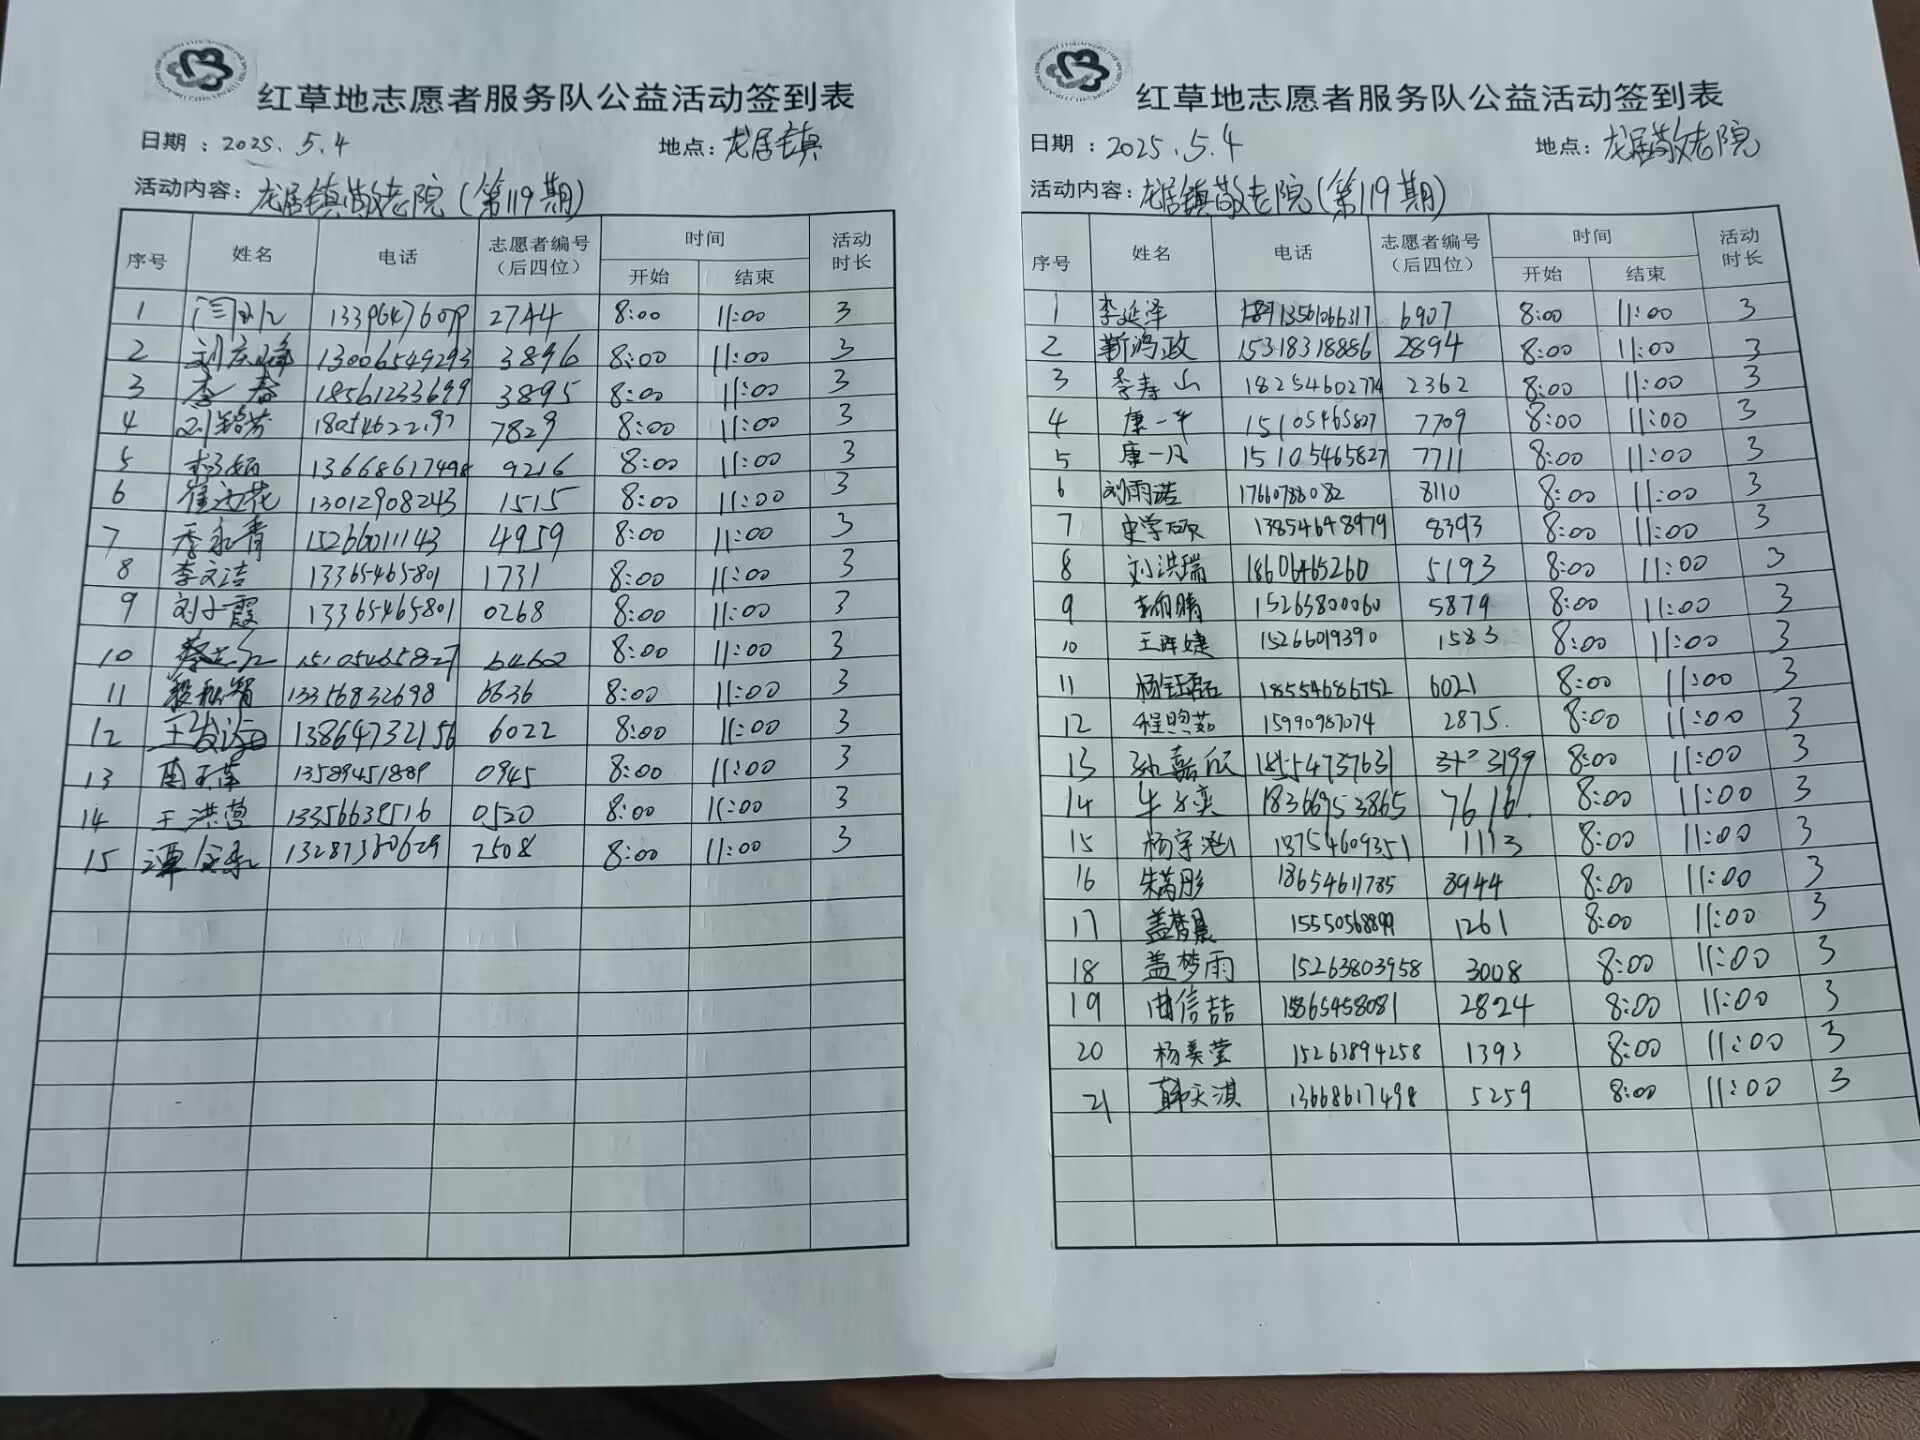 红草地志愿者服务队公益活动签到表
日期：2025.5.4 地点：龙居镇
活动内容：龙居镇敬老院（第119期）
序号 姓名 电话 志愿者编号（后四位） 时间 活动时长
开始 结束
1 2744 8:00 11:00 3
2 刘庆峰 13006549293 3896 8:00 11:00 3
3 李春 18561233699 3895 8:00 11:00 3
4 7829 8:00 11:00 3
5 13668617498 9216 8:00 11:00 3
6 13012908243 1515 8:00 11:00 3
7 季永青 15266011143 4959 8:00 11:00 3
8 李文洁 13365465801 1731 8:00 11:00 3
9 刘子霞 13365465801 0268 8:00 11:00 3
10 15105465827 8:00 11:00 3
11 13356832698 6636 8:00 11:00 3
12 王发运 13864732156 6022 8:00 11:00 3
13 13589451889 0945 8:00 11:00 3
14 王洪营 13356639516 0520 8:00 11:00 3
15 13287380629 7508 8:00 11:00 3
红草地志愿者服务队公益活动签到表
日期：2025.5.4 地点：龙居敬老院
活动内容：龙居镇敬老院（第119期）
序号 姓名 电话 志愿者编号（后四位） 时间 活动时长
开始 结束
1 李延泽 6907 8:00 11:00 3
2 靳鸿政 15318318886 2894 8:00 11:00 3
3 李寿山 18254602774 2362 8:00 11:00 3
4 康一平 15105465827 7709 8:00 11:00 3
5 康一凡 15105465827 7711 8:00 11:00 3
6 刘雨诺 17660788082 8110 8:00 11:00 3
7 史学硕 13854648979 8393 8:00 11:00 3
8 刘洪瑞 18606465260 5193 8:00 11:00 3
9 15265800060 5879 8:00 11:00 3
10 15266019390 1583 8:00 11:00 3
11 杨钰磊 18554686752 6021 8:00 11:00 3
12 程煦茹 15990987074 2875. 8:00 11:00 3
13 孙嘉欣 18554737631 3199 8:00 11:00 3
14 18366953865 7616. 8:00 11:00 3
15 13754609351 1113 8:00 11:00 3
16 18654611785 8944 8:00 11:00 3
17 盖梦晨 15550568899 1261 8:00 11:00 3
18 盖梦雨 15263803958 3008 8:00 11:00 3
19 曲信喆 15865458081 2824 8:00 11:00 3
20 杨美莹 15263894258 1393 8:00 11:00 3
21 韩天淇 13668617498 5259 8:00 11:00 3